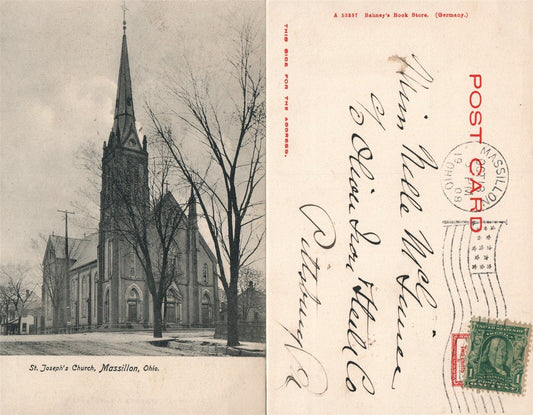 St. Joseph's Church, Massillon, Ohio.
A 53237 Bahney's Book Store. (Germany.)
THIS SIDE FOR THE ADDRESS.
POST CARD
MASSILLON
OHIO
OCT
PM
1908
Miss Nelle McC
c/o Oliver Iron & Steel Co
Pittsburg Pa